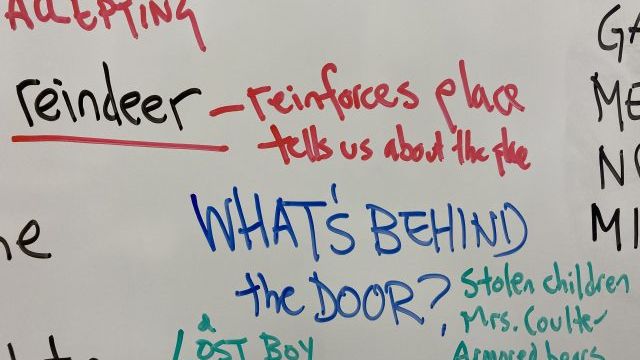 ACCEPTING
reindeer - reinforces place
tells us about the place
WHAT'S BEHIND
the DOOR?
Stolen children
Mrs. Coulter
Armored bears
a
LOST BOY
GA
ME
NO
MI
ne